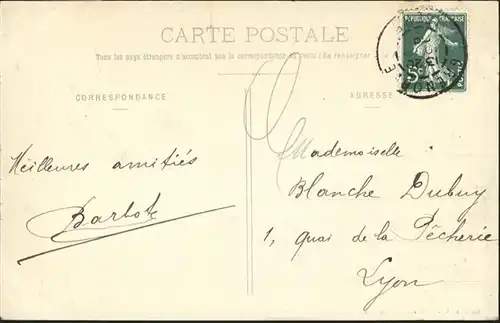 CARTE POSTALE
Tous les pays étrangers n'acceptent pas la correspondance au recto (Se renseigner
CORRESPONDANCE
ADRESSE
RÉPUBLIQUE FRANÇAISE
5c
Meilleures amitiés
Mademoiselle
Blanche Dubuy
1, Quai de la Pêcherie
Lyon